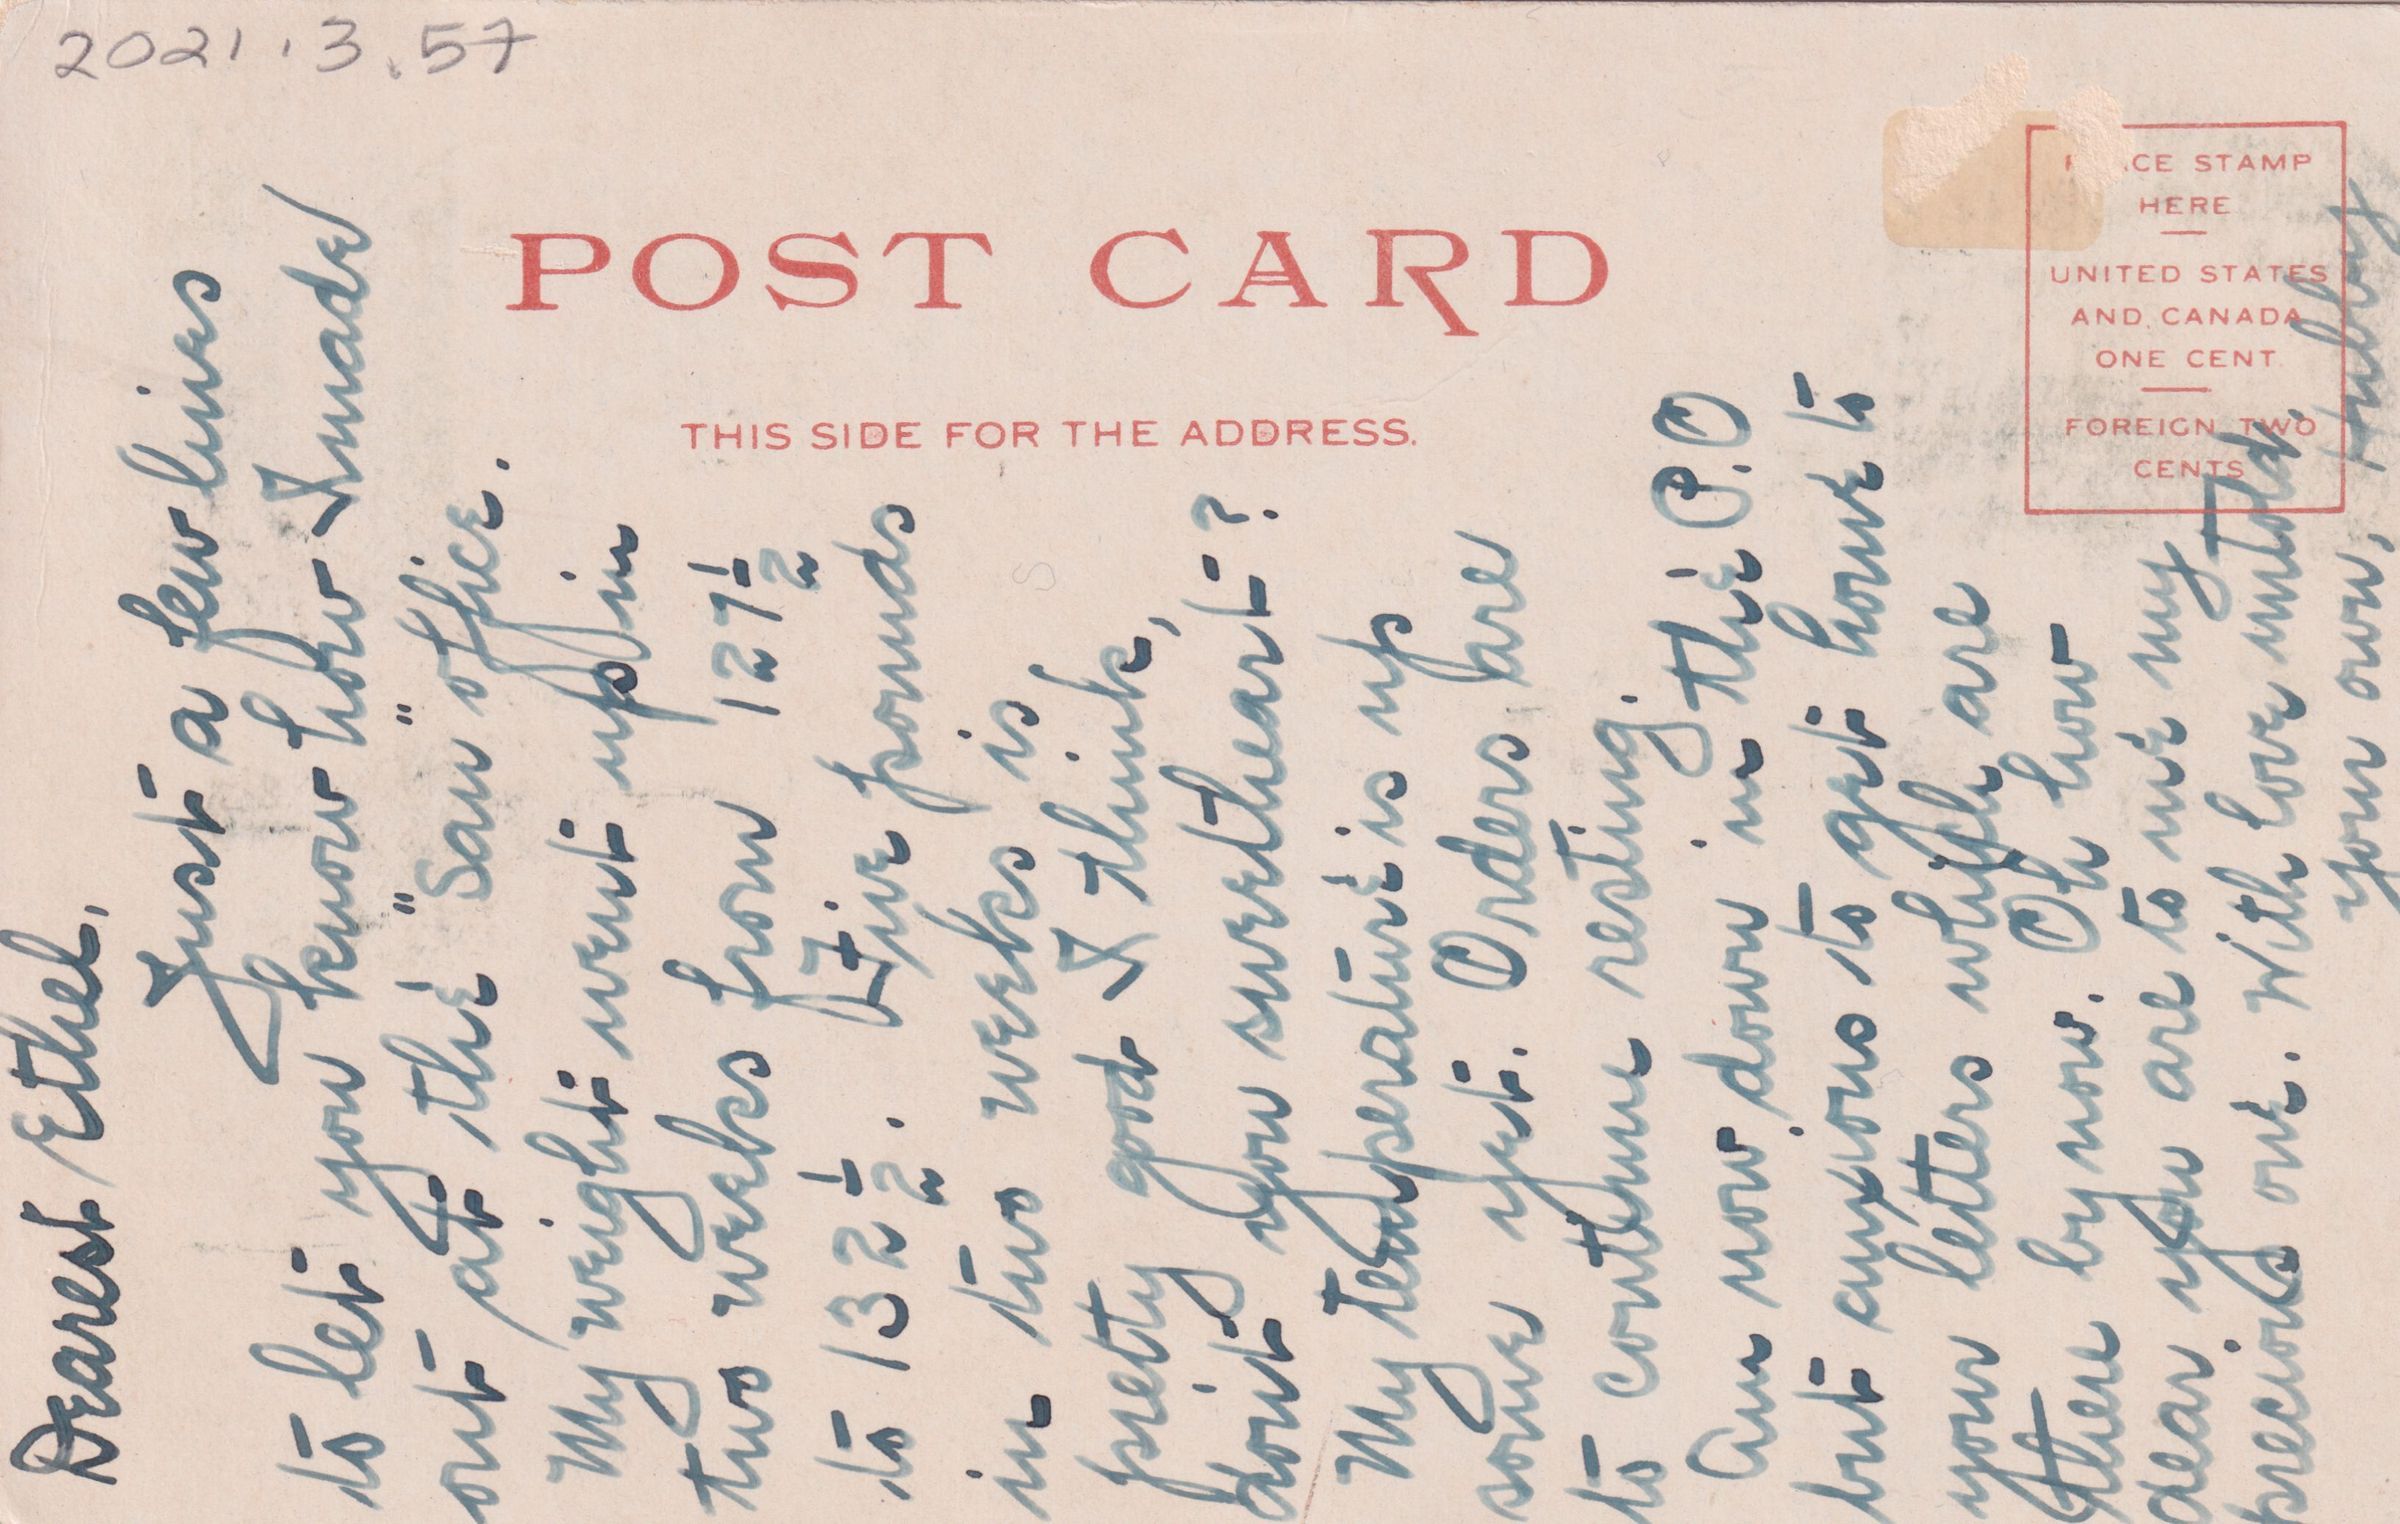 2021.3.57
POST CARD
THIS SIDE FOR THE ADDRESS.
PLACE STAMP
HERE
UNITED STATES
AND CANADA
ONE CENT
FOREIGN TWO
CENTS
Dearest Ethel,
Just a few lines
to let you know how I made
out at the "San" office.
My weight went up in
two weeks from 127½
to 132½. Five pounds
in two weeks is,
prety good I think,
don't you sweetheart?
My temperature is up
some yet. Orders are
to contenue resting.
Am now down in the P.O
but anxious to get home to
your letters which are
there by now. Oh how
dear you are to me my
precious one. With love untold,
Your own, Hubby